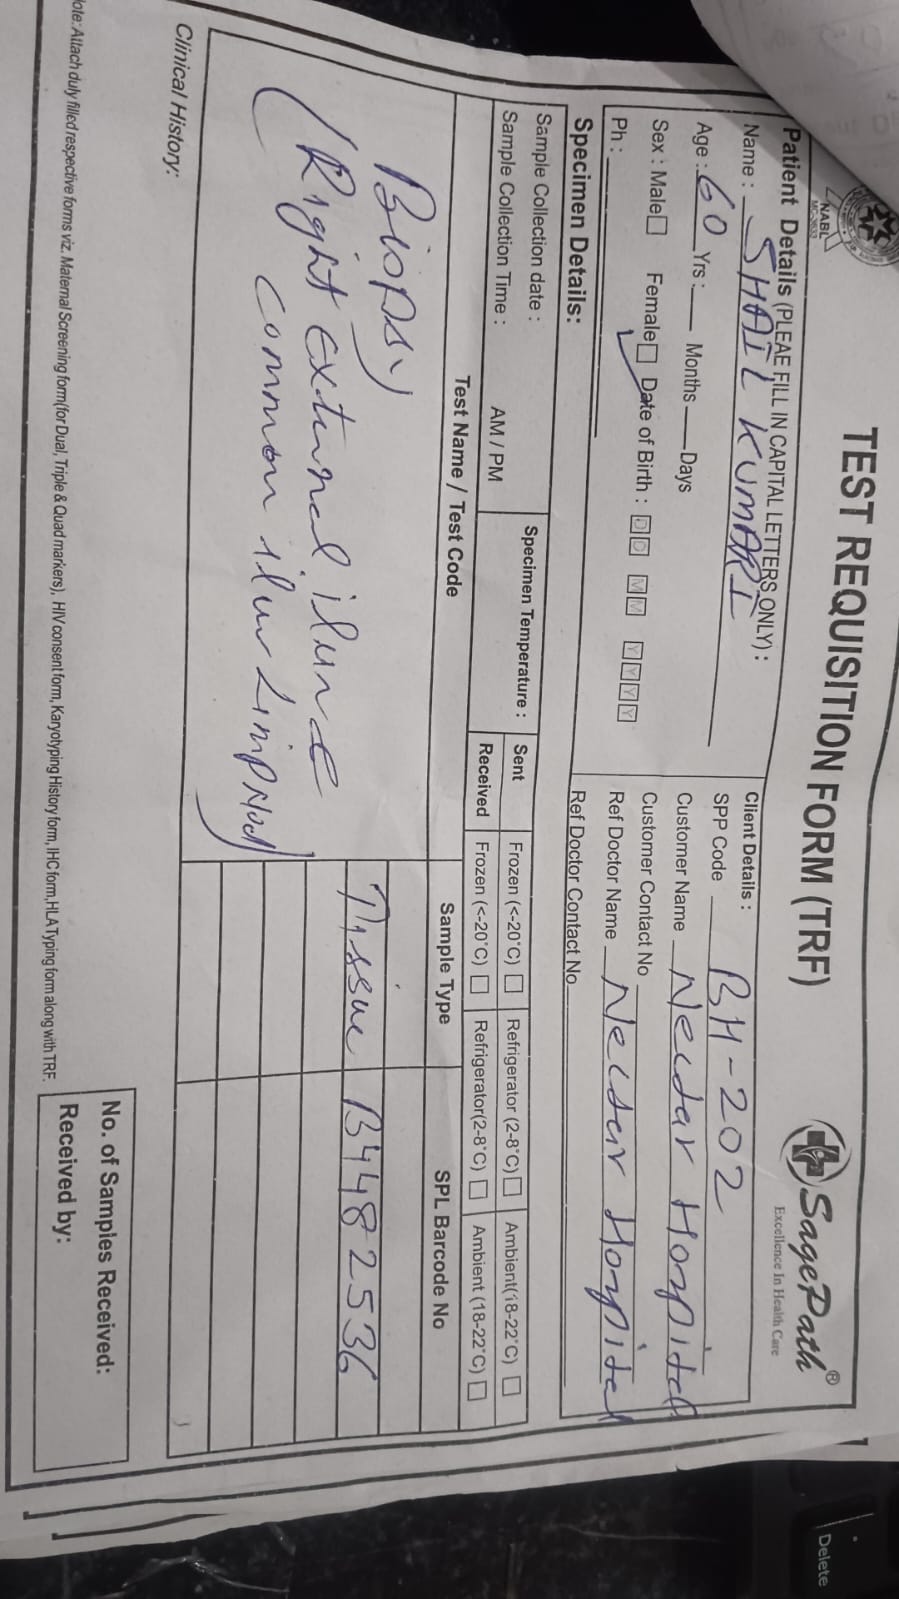 TEST REQUISITION FORM (TRF)
SagePath®
Excellence In Health Care
NABL
Patient Details (PLEAE FILL IN CAPITAL LETTERS ONLY) :
Name : SHAIL KUMARI
Age : 60 Yrs : Months Days
Sex : Male Female ✓ Date of Birth : D D M M Y Y Y Y
Ph :
Client Details :
SPP Code BH-202
Customer Name Nectar Hospital
Customer Contact No
Ref Doctor Name Nectar Hospital
Ref Doctor Contact No
Specimen Details:
Sample Collection date :
Sample Collection Time : AM / PM
Specimen Temperature :
Sent Frozen (<-20°C) Refrigerator (2-8°C) Ambient(18-22°C)
Received Frozen (<-20°C) Refrigerator(2-8°C) Ambient (18-22°C)
Test Name / Test Code Sample Type SPL Barcode No
Biopsy
(Right External iliac
common
Tissue B4482536
Clinical History:
No. of Samples Received:
Received by:
Note: Attach duly filled respective forms viz. Maternal Screening form(for Dual, Triple & Quad markers), HIV consent form, Karyotyping History form, IHC form,HLA Typing form along with TRF.
Delete